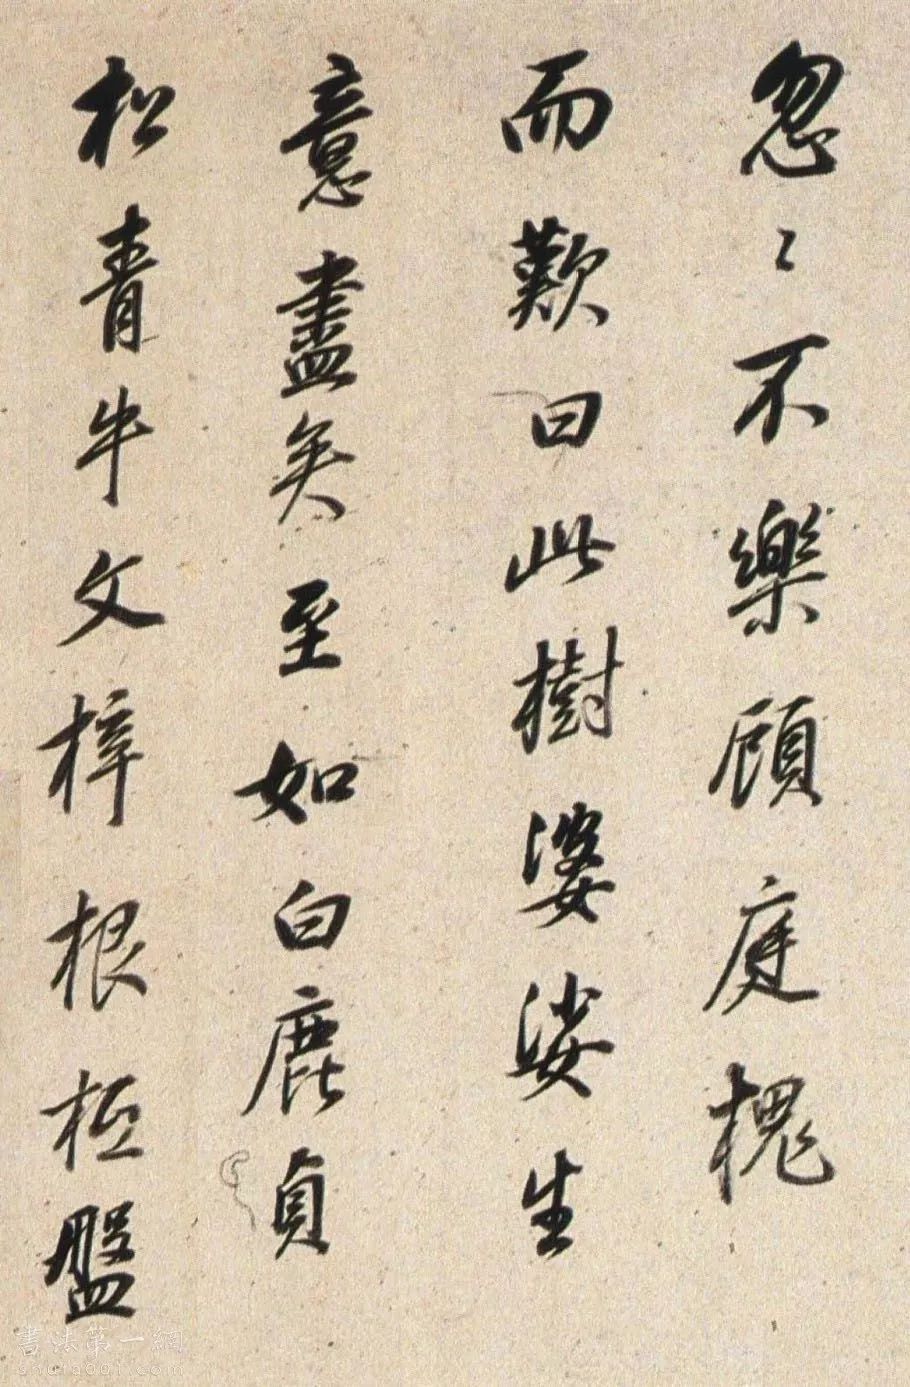 忽〻不樂顧庭槐
而歎曰此樹婆娑生
意盡矣至如白鹿貞
松青牛文梓根柢盤
書法第一網
shufa001.com